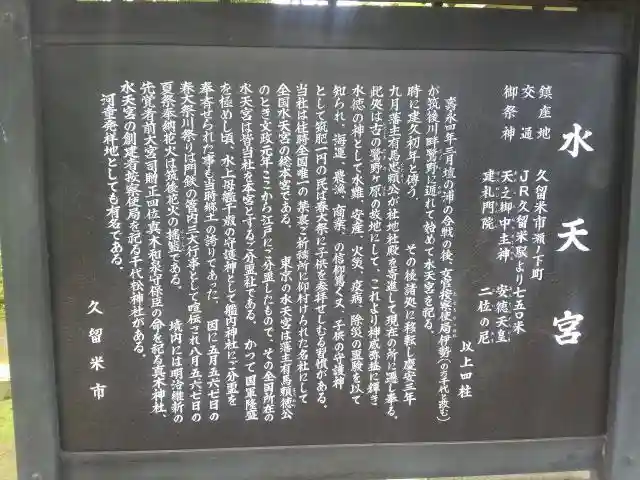 水天宮
鎮座地　久留米市瀬ノ下町
交通　JR久留米駅より七五〇米
御祭神　天之御中主神　安徳天皇
建礼門院　二位の尼
以上四柱
寿永四年三月壇の浦の合戦の後、女官按察使局伊勢(のち千代と改む)
が筑後川畔鷺野に遁れて始めて水天宮を祀る。
時に建久初年と傳う。　その後諸処に移転し慶安三年
九月藩主有馬忠頼公が社地社殿を寄進して現在の所に遷し奉る。
此処は古の鷺野ヶ原の故地にして、これより神威赤猛に輝き
水徳の神として水難、安産、火災、疫病、除災の霊験を以て
知られ、海運、農漁、商業、の信仰篤くス、子供の守護神
として筑肥一円の民は春大祭に子供を参拝せしむる習慣がある。
当社は往時全国唯一の禁裏ご祈祷所に仰付けられた名社にして
全国水天宮の総本宮である。　東京の水天宮は藩主有馬頼徳公
のとき文政元年ここから江戸にご分霊したもので、その全国所在の
水天宮は皆当社を本宮とするご分霊社である。　かつて国軍隆盛
を極めし頃、水上母艦千歳の守護神として艦内神社にご分霊を
奉斎せられた事も当時郷土の誇りであった。　因に五月五六七日の
春大祭川祭りは門鉄の管内三大行事として喧伝され八月五六七日の
夏祭奉納花火は筑後花火の搖籃である。　境内には明治維新の
先覚者前大宮司贈正四位真木和泉守保臣の命を祀る真木神社、
水天宮の創建者按察使局を祀る千代松神社がある。
河童発祥地としても有名である。
久留米市